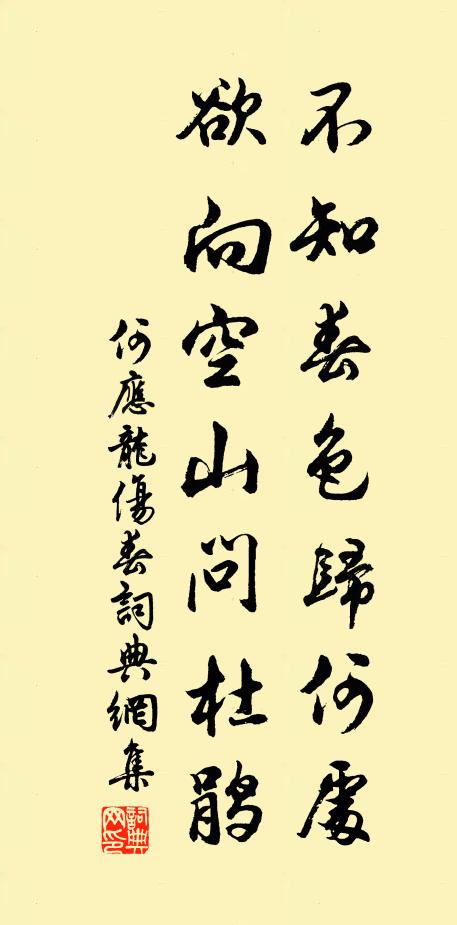 不知春色歸何處
欲向空山問杜鹃
何應龍傷春詞典網集
詞典网印